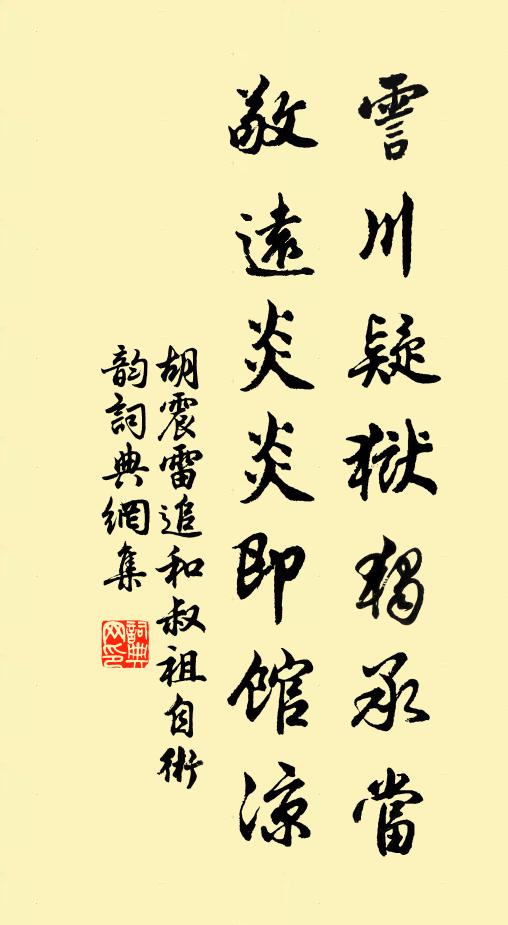 霅川疑獄獨承當
敬遠炎炎即館涼
胡震雷追和叔祖自術
韵詞典網集
詞典網印